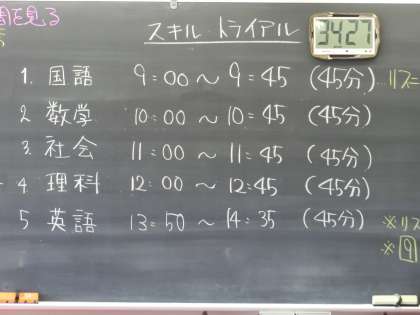 を見る
スキルトライアル
34 27
1. 国語 9:00 ～ 9:45 (45分) リスニ
2 数学 10:00 ～ 10:45 (45分)
3. 社会 11:00 ～ 11:45 (45分)
4 理科 12:00 ～ 12:45 (45分)
5 英語 13:50 ～ 14:35 (45分)
※リス
※ 9